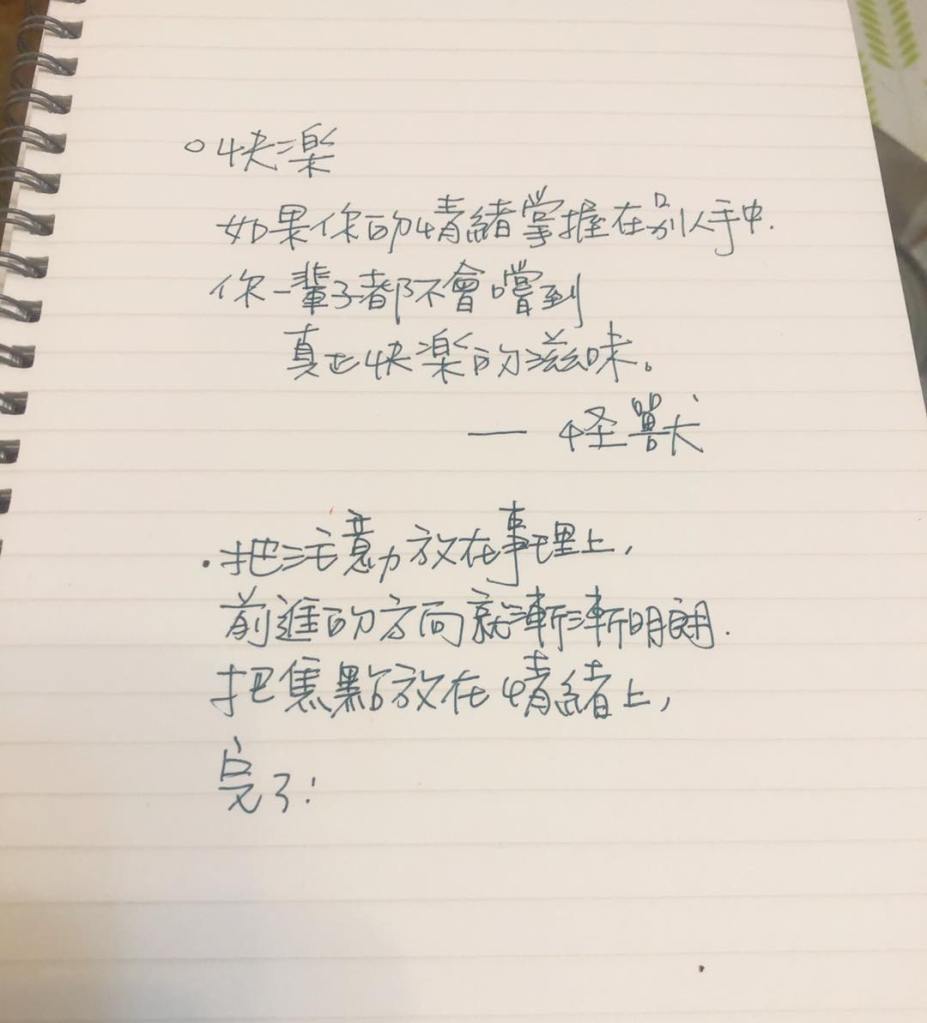 ○快樂
如果你的情緒掌握在別人手中.
你一輩子都不會嚐到
真正快樂的滋味。
— 怪獸
．把注意力放在事理上,
前進的方向就漸漸明朗.
把焦點放在情緒上,
完了!